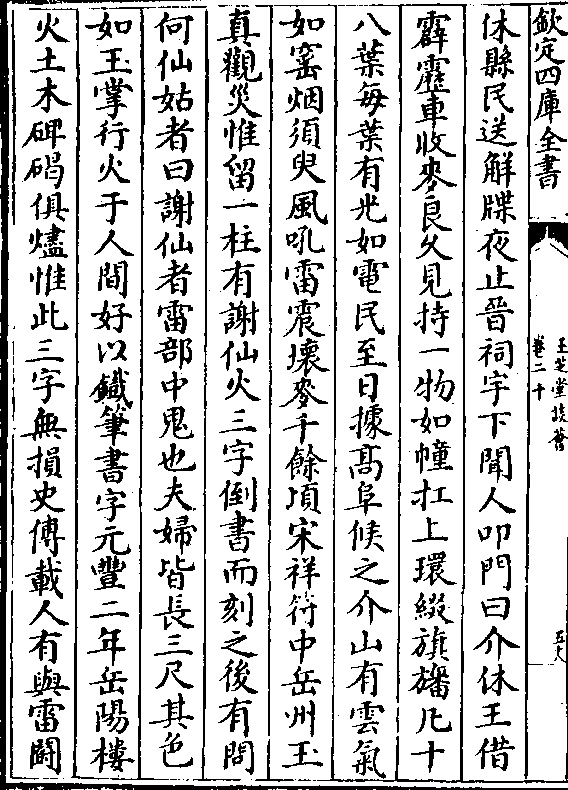 欽定四庫全書
玉芝堂談薈
卷二十
五大
休縣民送解牒夜止晉祠宇下聞人叩門曰介休王借
霹靂車收麥良久見持一物如幢扛上環綴旗旛凡十
八葉每葉有光如電民至日據髙阜候之介山有雲氣
如窰烟須臾風吼雷震壞麥千餘頃宋祥符中岳州玉
真觀災惟留一柱有謝仙火三字倒書而刻之後有問
何仙姑者曰謝仙者雷部中鬼也夫婦皆長三尺其色
如玉掌行火于人間好以鐵筆書字元豐二年岳陽樓
火土木碑碣俱燼惟此三字無損史傳載人有與雷鬬